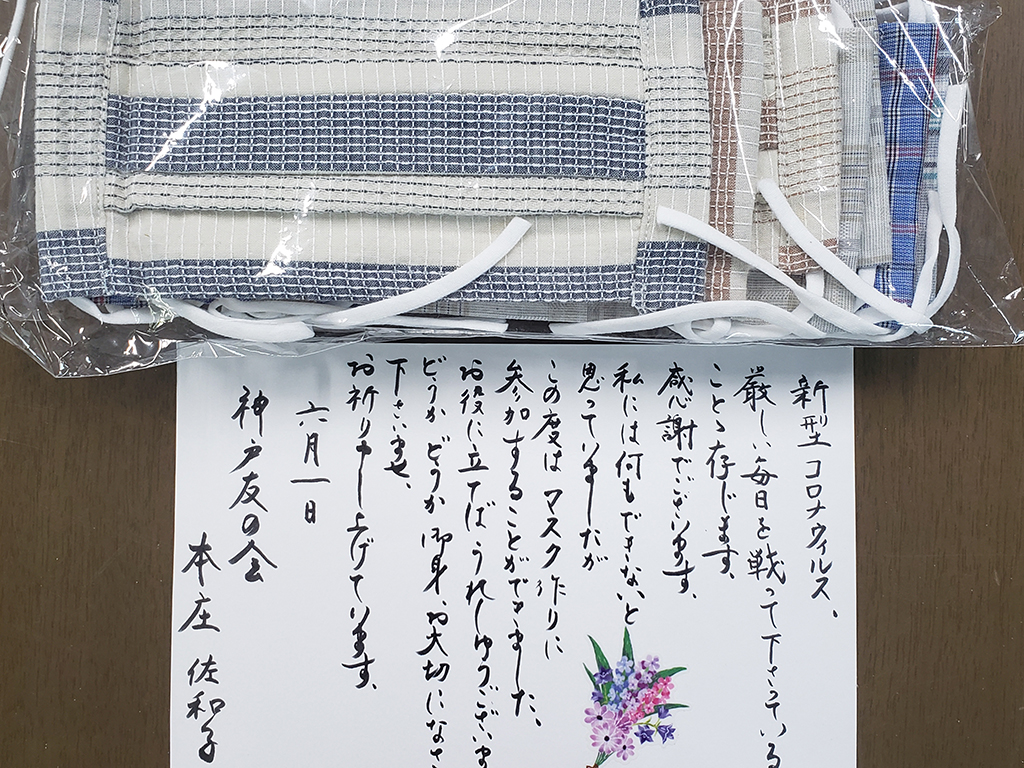 新型コロナウィルス、
厳しい毎日を戦って下さっている
ことゝ存じます、
感謝でございます。
私には何もできないと
思っていましたが
この度は マスク作りに
参加することができました、
お役に立てばうれしゅうございま
どうか どうか 御身、お大切になさ
下さいませ、
お祈り申し上げて居ります。
六月一日
神戸友の会
本庄 佐和子